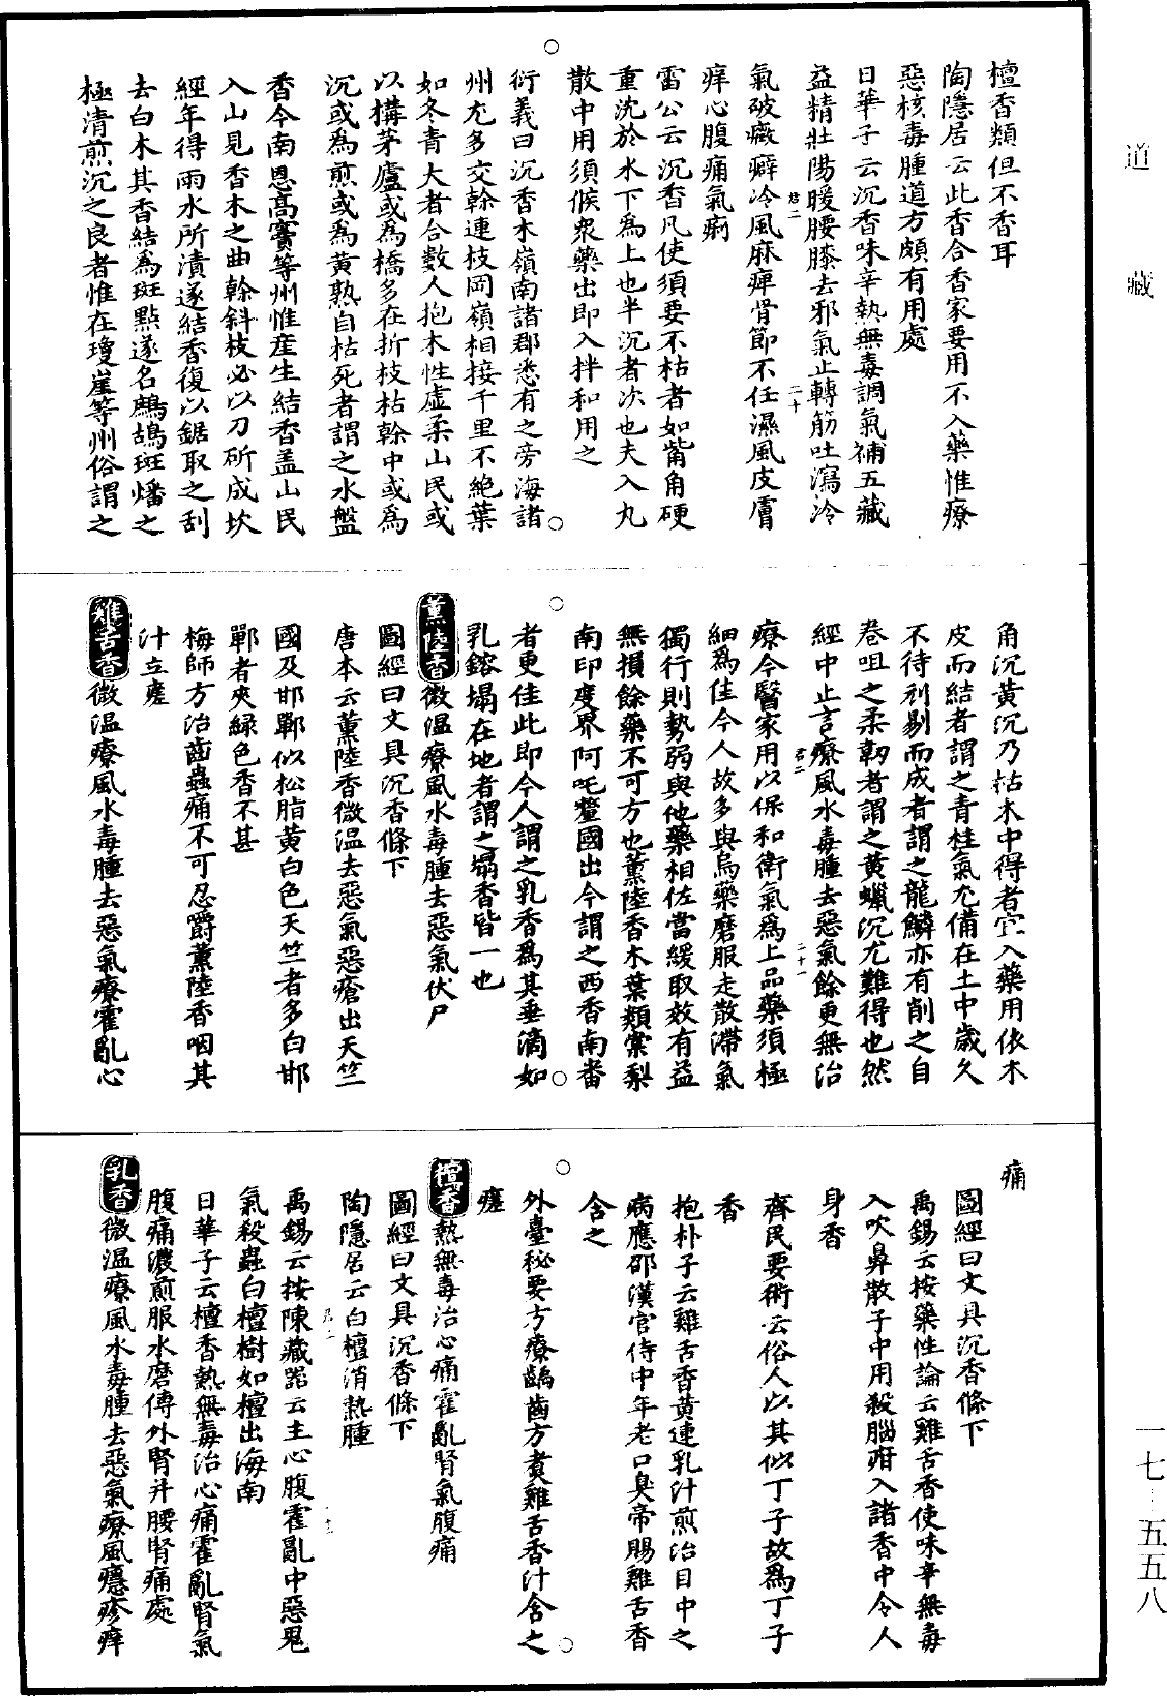 道藏
檀香類但不香耳
陶隱居云此香合香家要用不入藥惟療
惡核毒腫道方頗有用處
日華子云沉香味辛熱無毒調氣補五藏
益精壯陽暖腰膝去邪氣止轉筋吐瀉冷
氣破癥癖冷風麻痺骨節不任濕風皮膚
痒心腹痛氣痢
雷公云沉香凡使須要不枯者如觜角硬
重沈於水下為上也半沉者次也夫入丸
散中用須候衆藥出即入拌和用之
衍義曰沉香木嶺南諸郡悉有之旁海諸
州尤多交幹連枝岡嶺相接千里不絕葉
如冬青大者合數人抱木性虛柔山民或
以構茅廬或為橋多在折枝枯幹中或為
沉或為煎或為黃熟自枯死者謂之水盤
香今南恩高竇等州惟産生結香盖山民
入山見香木之曲幹斜枝必以刀斫成坎
經年得雨水所漬遂結香復以鋸取之刮
去白木其香結為斑點遂名鷓鴣斑燔之
極清煎沉之良者惟在瓊崖等州俗謂之
角沉黃沉乃枯木中得者宜入藥用依木
皮而結者謂之青桂氣尤備在土中歲久
不待刓剔而成者謂之龍鱗亦有削之自
卷咀之柔韌者謂之黃蠟沉尤難得也然
經中止言療風水毒腫去惡氣餘更無治
療今醫家用以保和衛氣為上品藥須極
細為佳今人故多與烏藥磨服走散滯氣
獨行則勢弱與他藥相佐當緩取效有益
無損餘藥不可方也薰陸香木葉類棠梨
南印度界阿吒釐國出今謂之西香南番
者更佳此即今人謂之乳香為其垂滴如
乳鎔塌在地者謂之塌香皆一也
薰陸香微温療風水毒腫去惡氣伏尸
圖經曰文具沉香條下
唐本云薰陸香微温去惡氣惡瘡出天竺
國及邯鄲似松脂黃白色天竺者多白邯
鄲者夾緑色香不甚
梅師方治齒蟲痛不可忍嚼薰陸香咽其
汁立瘥
雞舌香微温療風水毒腫去惡氣療霍亂心
痛
圖經曰文具沉香條下
禹錫云按藥性論云雞舌香使味辛無毒
入吹鼻散子中用殺腦疳入諸香中令人
身香
齊民要術云俗人以其似丁子故為丁子
香
抱朴子云雞舌香黃連乳汁煎治目中之
病應邵漢官侍中年老口臭帝賜雞舌香
含之
外臺秘要方療齲齒方煮雞舌香汁含之
瘥
檀香熱無毒治心痛霍亂腎氣腹痛
圖經曰文具沉香條下
陶隱居云白檀消熱腫
禹錫云按陳藏器云主心腹霍亂中惡鬼
氣殺蟲白檀樹如檀出海南
日華子云檀香熱無毒治心痛霍亂腎氣
腹痛濃煎服水磨傅外腎并腰腎痛處
乳香微温療風水毒腫去惡氣療風癮疹痒
一七·五五八